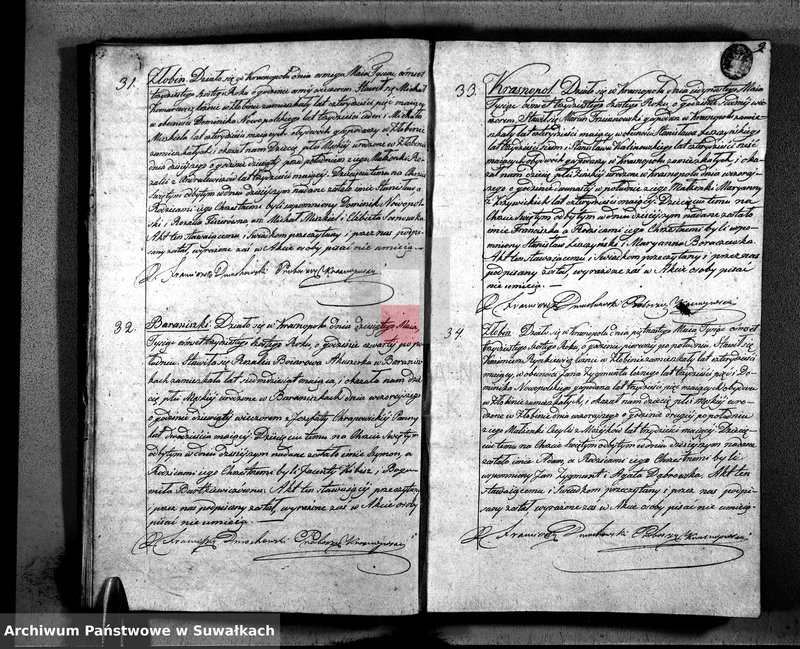 31.
Żłobin. Działo się w Krasnopolu dnia Maia Tysiąc ośmset
trzydziestego szóstego Roku o godzinie wieczorem Stawił się Michał
lat czterdzieści pięć maiący
w obecności Dominika Nowopolskiego lat trzydzieści siedm i Michała
lat czterdzieści maiących, obydwóch gospodarzy w Żłobinie
zamieszkałych i okazał nam Dziecię płci Męskiej urodzone w Żłobinie
dnia dzisiejszego o godzinie dziewiątey przed południem z iego Małżonki
lat trzydzieści maiącej. Dziecięciu temu na Chrzcie
Świętym odbytym w dniu dzisiejszym nadane zostało imie Stanisław a
Rodzicami iego Chrzestnemi byli wspomniony Dominik Nowopol-
ski i Rozalia
Akt ten stawaiącemu i świadkom przeczytany i przez nas podpi-
sany został, wyrażone zaś w Akcie osoby pisać nie umieią.
X. Franciszek Dmochowski Proboszcz Krasnopolski
32.
Baraniszki. Działo się w Krasnopolu dnia dziewiątego Maia
Tysiąc ośmset trzydziestego szóstego Roku, o godzinie czwarty po po-
łudniu Stawiła się Rozalia Boiarowa Akuszerka w Baranisz-
kach zamieszkała lat siedmdziesiąt maiąca, i okazała nam dzie-
cię płci Męskiej urodzone w Baraniszkach dnia wczorayszego
o godzinie dziewiąty wieczorem z Józefaty Chrapowickiej Panny
lat dwadzieścia maiącej. Dziecięciu temu na Chrzcie Świętym
odbytym w dniu dzisiejszym nadane zostało imie Szymon, a
Rodzicami iego Chrzestnemi byli Jacenty Kibisz i Bogu-
miła Burdzewiczówna. Akt ten stawaiącej przeczytany
i przez nas podpisany został, wyrażone zaś w Akcie osoby
pisać nie umieią.
X. Franciszek Dmochowski Proboszcz Krasnopolski
2
33.
Krasnopol. Działo się w Krasnopolu dnia iedynastego Maia
Tysiąc ośmset trzydziestego szóstego Roku, o godzinie siódmej wie-
czorem Stawił się Marcin gospodarz w Krasnopolu zamie-
szkały lat czterdzieści maiący w obecności Stanisława Łuszczyńskiego
lat trzydzieści siedm i Stanisława Kalinowskiego lat czterdzieści sześć
maiących obydwóch gospodarzy w Krasnopolu zamieszkałych, i oka-
zał nam dziecię płci Żeńskiej urodzone w Krasnopolu dnia wczoray-
szego o godzinie dwunasty w południe z iego Małżonki Maryanny
z lat czterdzieści maiącej. Dziecięciu temu na
Chrzcie Świętym odbytym w dniu dzisiejszym nadane zostało
imie Franciszka a Rodzicami iego Chrzestnemi byli wspo-
mniony Stanisław Łuszczyński i Maryanna Boraszewska.
Akt ten stawaiącemu i świadkom przeczytany i przez nas
podpisany został, wyrażone zaś w Akcie osoby pisać
nie umieią.
X. Franciszek Dmochowski Proboszcz Krasnopolski
34.
Żłobin. Działo się w Krasnopolu dnia piętnastego Maia Tysiąc ośmset
trzydziestego szóstego Roku, o godzinie pierwszy po południu. Stawił się
Kazimierz w Żłobinie zamieszkały lat czterdzieści
maiący, w obecności Jana Zygmunta lat trzydzieści pięć i Do-
minika Nowopolskiego gospodarza lat trzydzieści pięć maiących obydwóch
w Żłobinie zamieszkałych, i okazał nam dziecię płci Męskiej uro-
dzone w Żłobinie dnia wczorayszego o godzinie drugiej po południu
z iego Małżonki Cecylii z lat trzydzieści maiącej. Dziecię-
ciu temu na Chrzcie Świętym odbytym w dniu dzisiejszym nadane
zostało imie Adam a Rodzicami iego Chrzestnemi byli
wspomniony Jan Zygmunt i Agata Dąbrowska. Akt ten
stawaiącemu i świadkom przeczytany i przez nas podpi-
sany został, wyrażone zaś w Akcie osoby pisać nie umieią.
X. Franciszek Dmochowski Proboszcz Krasnopolski
Archiwum Państwowe w Suwałkach